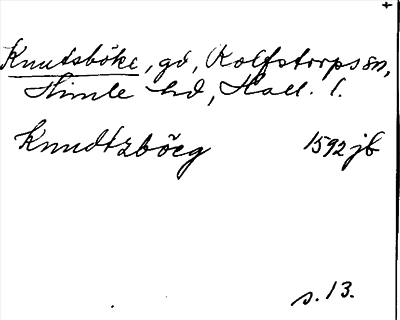 Knutsböke, gd, Rolfstorps sn,
Himle hd, Hall. l.
Knudtzböög 1592 jb
s. 13.